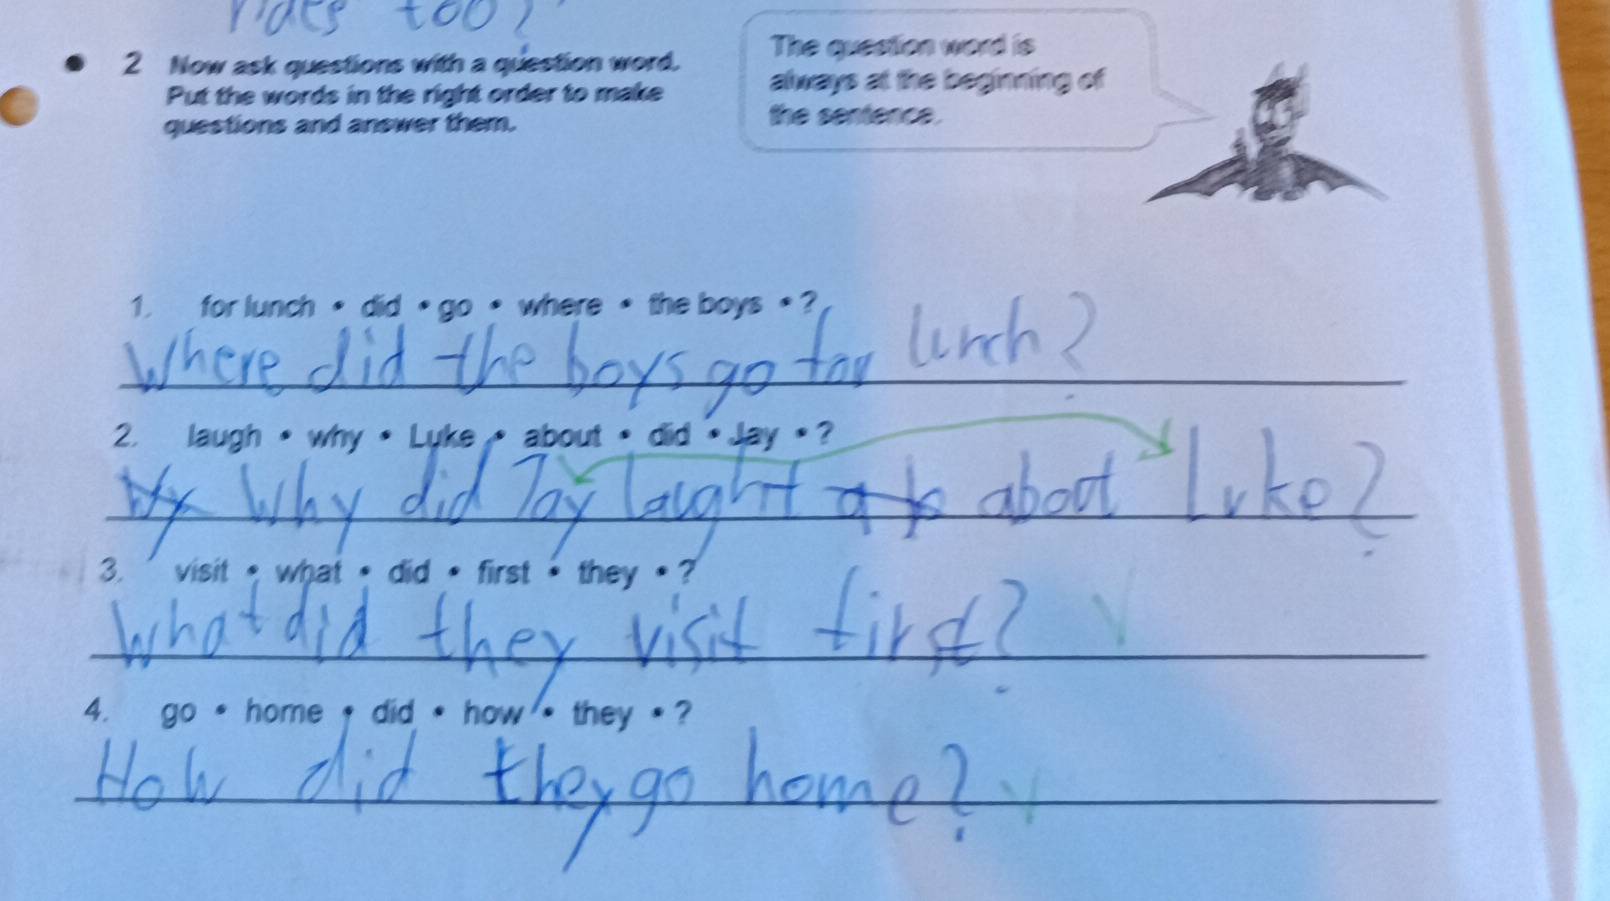 rides too?
2 Now ask questions with a question word.
Put the words in the right order to make
questions and answer them.
The question word is
always at the beginning of
the sentence.
1. for lunch • did • go • where • the boys • ?
Where did the boys go for lunch?
2. laugh • why • Luke • about • did • Jay • ?
Wy Why did Jay laught a b about Luke?
3. visit • what • did • first • they • ?
What did they visit first?
4. go • home • did • how • they • ?
How did they go home?